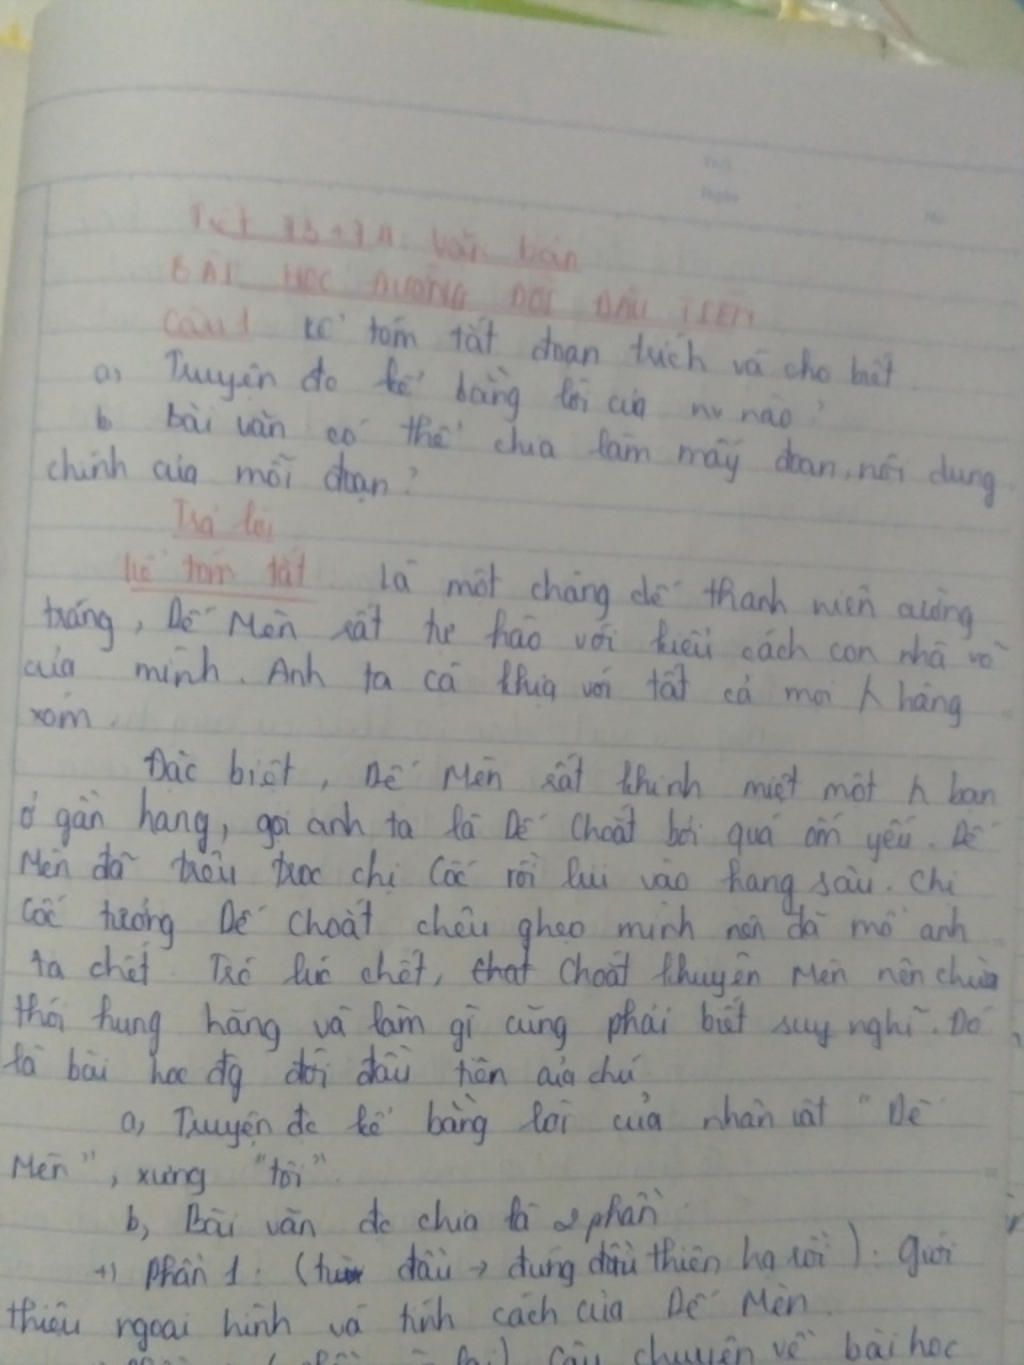 Tiết 73+74 Văn bản
BÀI HỌC ĐƯỜNG ĐỜI ĐẦU TIÊN
Câu 1 Kể tóm tắt đoạn trích và cho biết
a, Truyện đc kể bằng lời của nv nào?
b Bài văn có thể chia làm mấy đoạn, nội dung
chính của mỗi đoạn?
Trả lời
Kể tóm tắt Là một chàng dế thanh niên cường
tráng, Dế Mèn rất tự hào với kiểu cách con nhà võ
của mình. Anh ta cà khịa với tất cả mọi hàng
xóm.
Đặc biệt, Dế Mèn rất khinh miệt một bạn
ở gần hang, gọi anh ta là Dế Choắt bởi quá ốm yếu. Dế
Mèn đã trêu trọc chị Cốc rồi lủi vào hang sâu. Chị
Cốc tưởng Dế Choắt chêu ghẹo mình nên đã mổ anh
ta chết Trớ lúc chết, Choắt khuyên Mèn nên chừa
thói hung hăng và làm gì cũng phải biết suy nghĩ. Đó
là bài học đg đời đầu tiên của chú
a, Truyện đc kể bằng lời của nhân vật "Dế
Mèn", xưng "tôi"
b, Bài văn đc chia là 2 phần
+) Phần 1: (từ đầu → đứng đầu thiên hạ rồi): giới
thiệu ngoại hình và tính cách của Dế Mèn.
lại) Câu chuyện về bài học